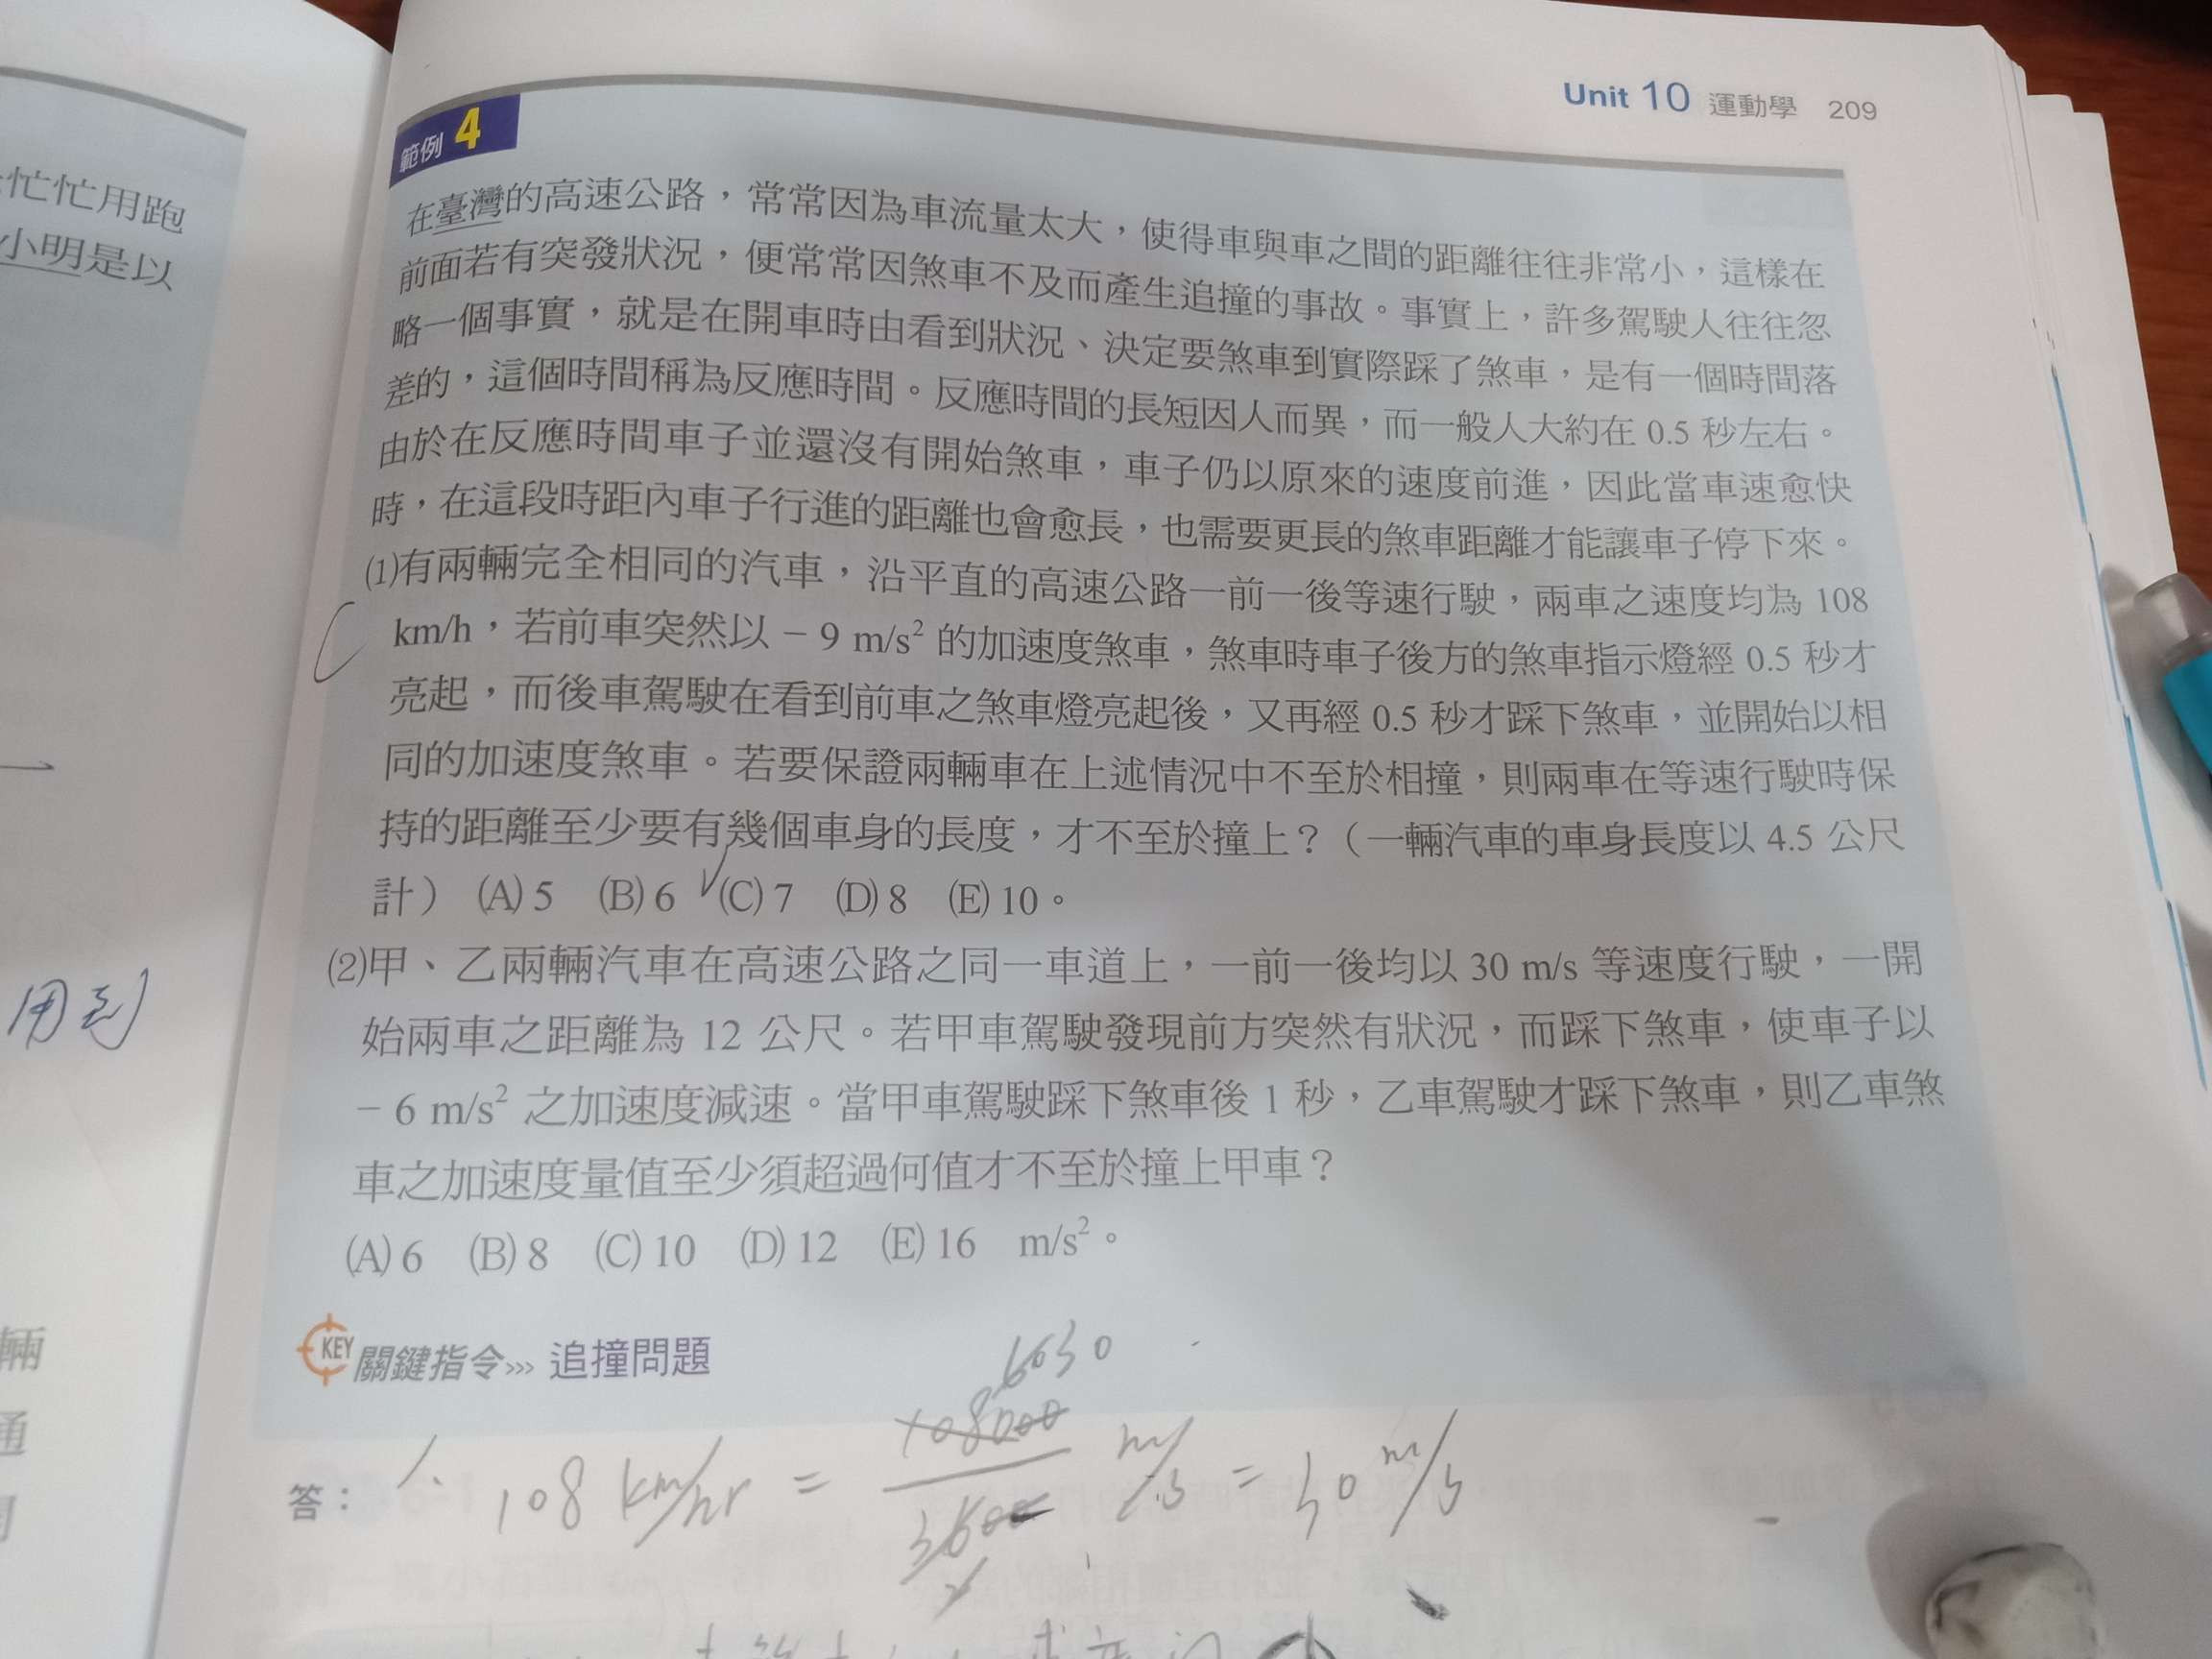 Unit 10 運動學 209
範例 4
忙忙用跑
小明是以
在臺灣的高速公路，常常因為車流量太大，使得車與車之間的距離往往非常小，這樣在
前面若有突發狀況，便常常因煞車不及而產生追撞的事故。事實上，許多駕駛人往往忽
略一個事實，就是在開車時由看到狀況、決定要煞車到實際踩了煞車，是有一個時間落
差的，這個時間稱為反應時間。反應時間的長短因人而異，而一般人大約在 0.5 秒左右。
由於在反應時間車子並還沒有開始煞車，車子仍以原來的速度前進，因此當車速愈快
時，在這段時距內車子行進的距離也會愈長，也需要更長的煞車距離才能讓車子停下來。
⑴有兩輛完全相同的汽車，沿平直的高速公路一前一後等速行駛，兩車之速度均為 108
C
km/h，若前車突然以 − 9 m/s² 的加速度煞車，煞車時車子後方的煞車指示燈經 0.5 秒才
亮起，而後車駕駛在看到前車之煞車燈亮起後，又再經 0.5 秒才踩下煞車，並開始以相
同的加速度煞車。若要保證兩輛車在上述情況中不至於相撞，則兩車在等速行駛時保
持的距離至少要有幾個車身的長度，才不至於撞上？（一輛汽車的車身長度以 4.5 公尺
計） (A) 5 (B) 6 ✓(C) 7 (D) 8 (E) 10。
⑵甲、乙兩輛汽車在高速公路之同一車道上，一前一後均以 30 m/s 等速度行駛，一開
始兩車之距離為 12 公尺。若甲車駕駛發現前方突然有狀況，而踩下煞車，使車子以
− 6 m/s² 之加速度減速。當甲車駕駛踩下煞車後 1 秒，乙車駕駛才踩下煞車，則乙車煞
車之加速度量值至少須超過何值才不至於撞上甲車？
(A) 6 (B) 8 (C) 10 (D) 12 (E) 16 m/s²。
用到
輛
通
KEY 關鍵指令››› 追撞問題
答：
1. 108 km/hr = 108000/3600 m/s = 30 m/s